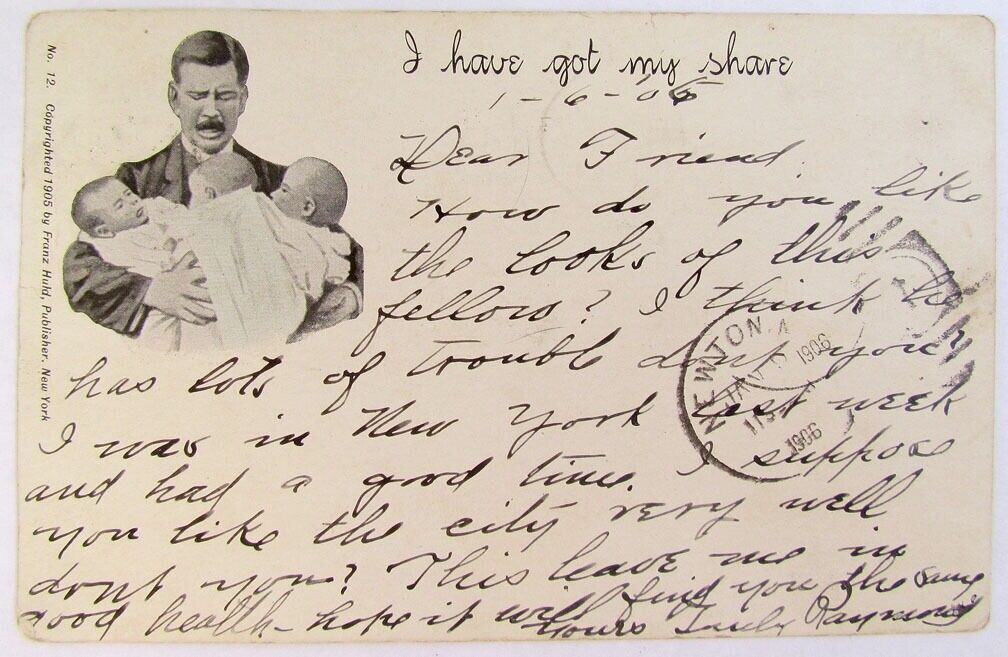 I have got my share
No. 12. Copyrighted 1905 by Franz Huld, Publisher, New York
1-6-06
Dear Friend.
How do you like
the looks of this
fellow? I think he
has lots of trouble dont you?
I was in New York last week
and had a good time. I suppose
you like the city very well
dont you? This leave me in
good health - hope it will find you the same
Yours Truly Raymond
NEWTON
JAN 1906
1906